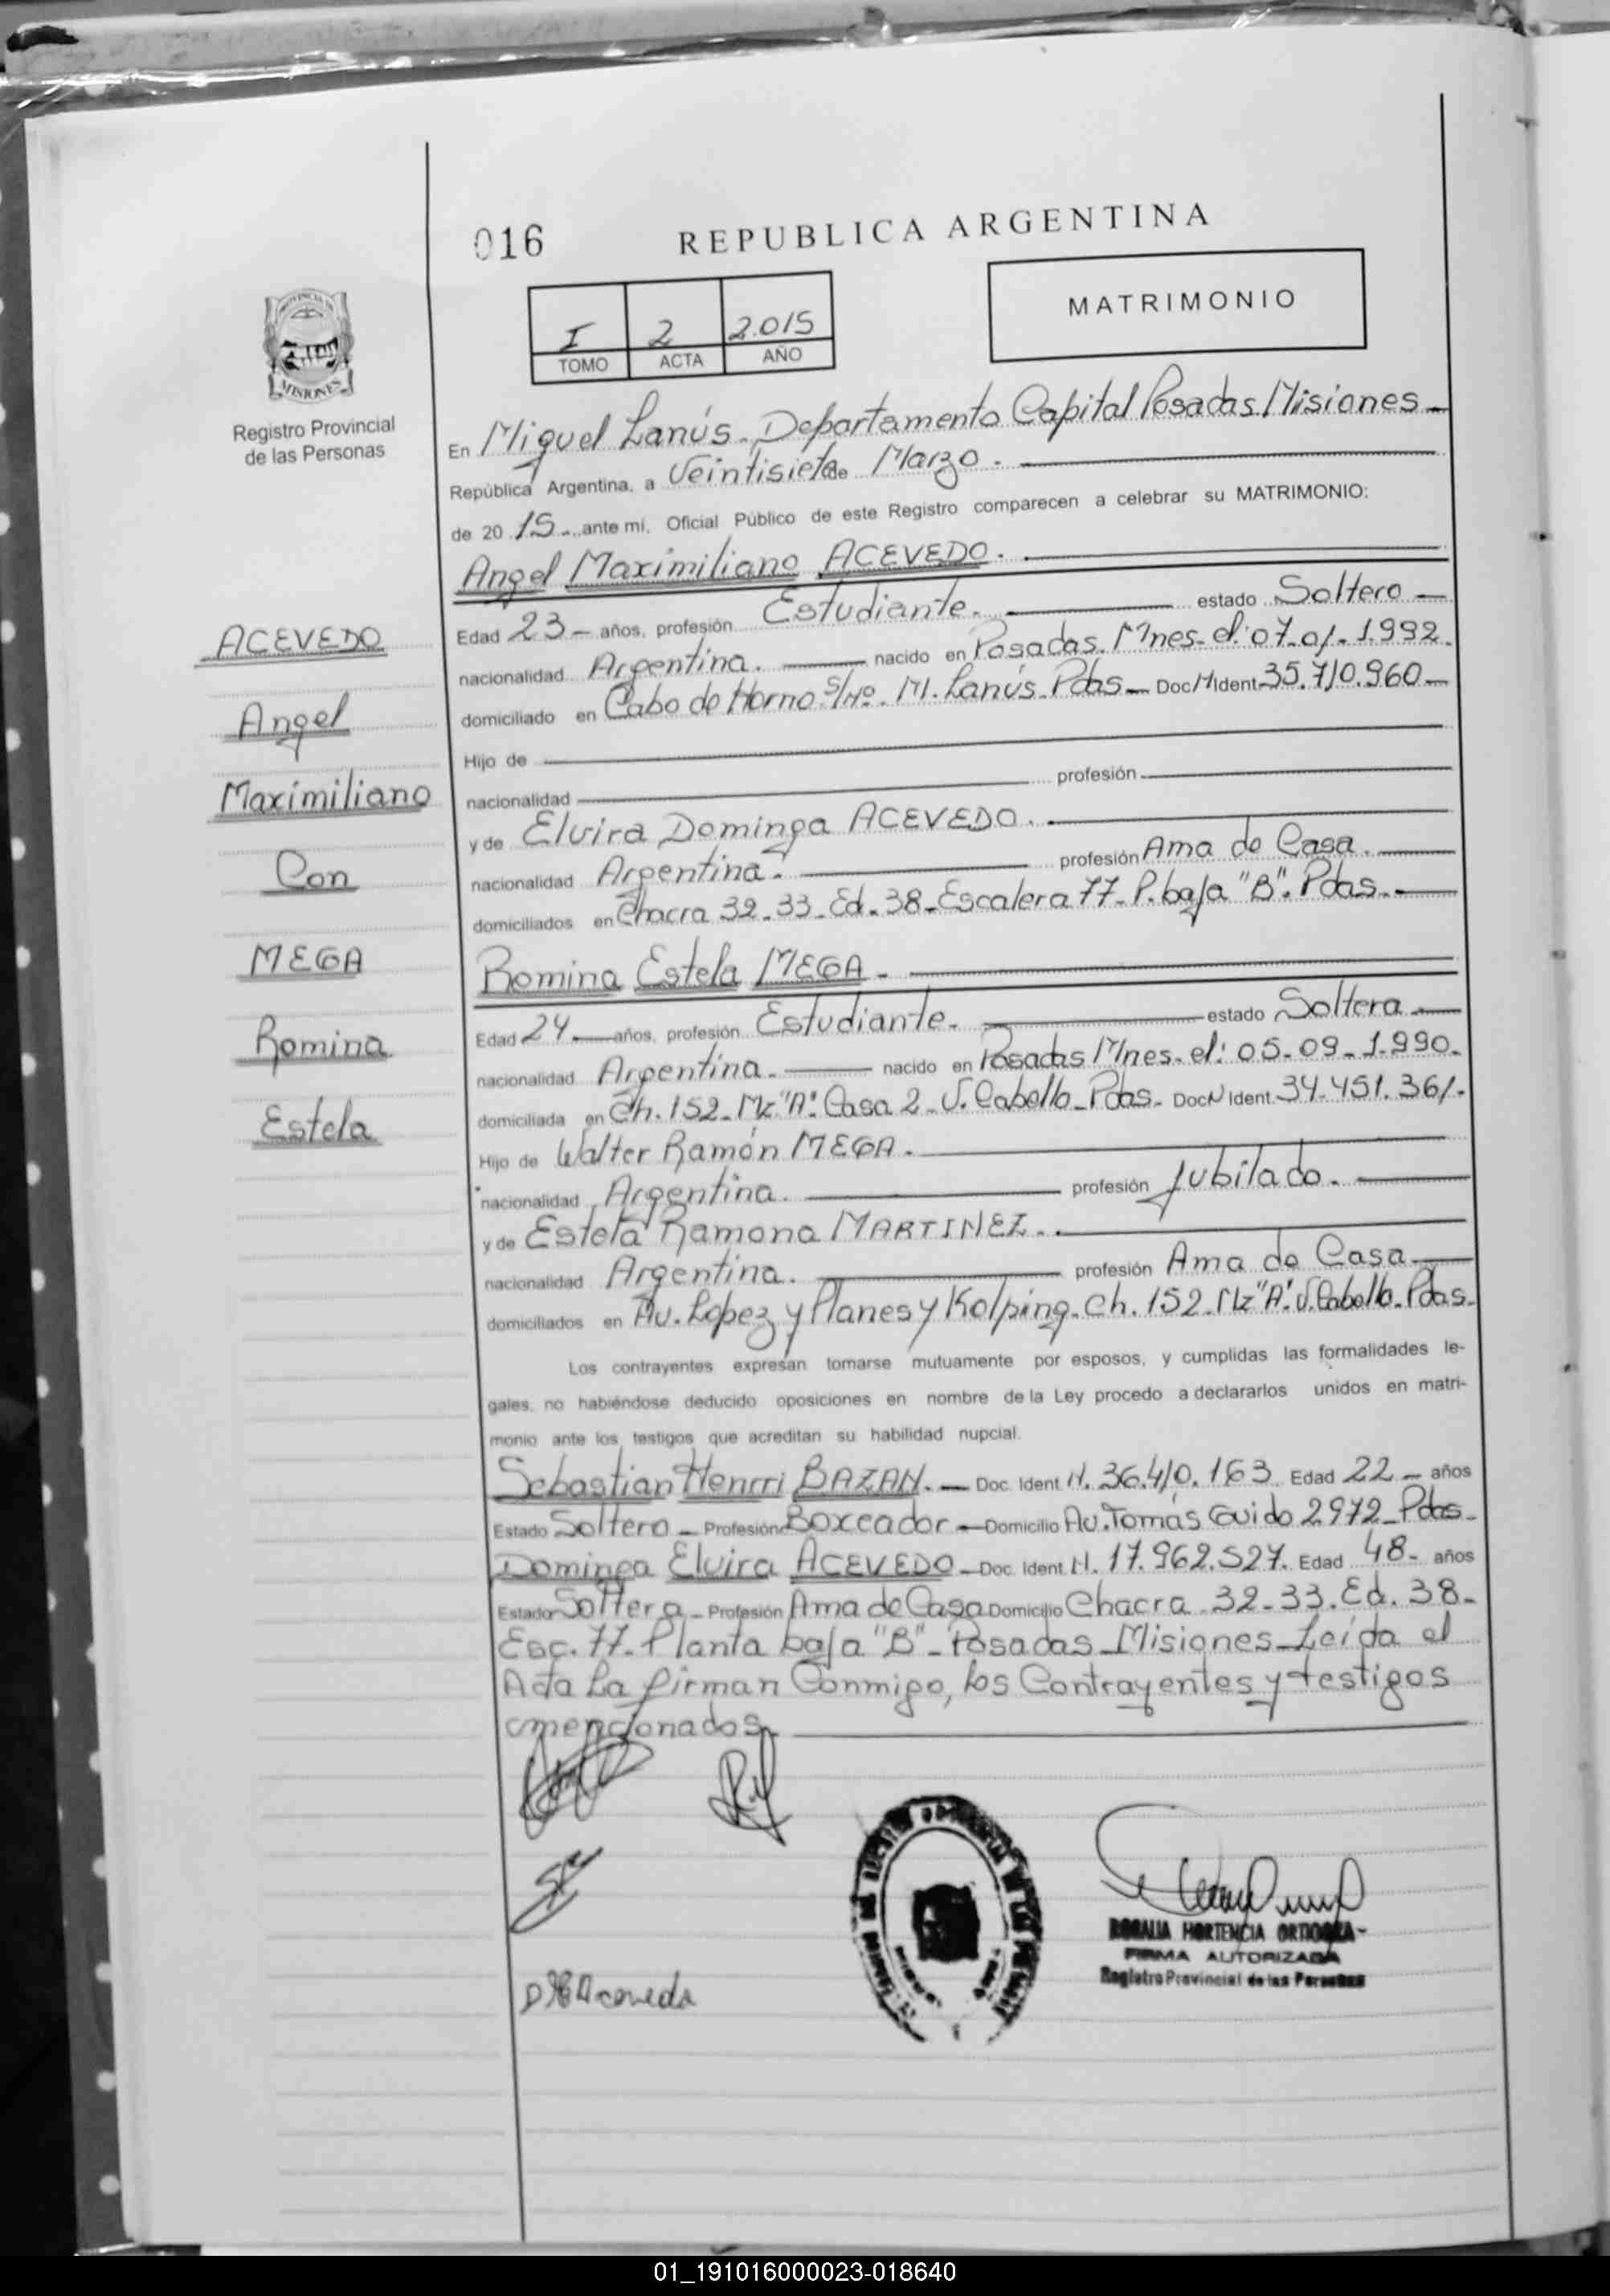 016
REPUBLICA ARGENTINA
I 2 2.015
TOMO ACTA AÑO
MATRIMONIO
PROVINCIA DE
MISIONES
Registro Provincial
de las Personas
En Miguel Lanús. Departamento Capital Posadas Misiones
República Argentina, a Veintisiete de Marzo.
de 20 15 ante mí, Oficial Público de este Registro comparecen a celebrar su MATRIMONIO:
Angel Maximiliano ACEVEDO.
Edad 23 años, profesión Estudiante. estado Soltero
nacionalidad Argentina. nacido en Posadas. Mnes. el: 07-01-1.992
domiciliado en Cabo de Horno S/Nº. M. Lanús. Pdas Doc N Ident 35.710.960
Hijo de
nacionalidad profesión
y de Elvira Dominga ACEVEDO.
nacionalidad Argentina. profesión Ama de Casa.
domiciliados en Chacra 32-33-Ed. 38-Escalera 77-P. baja "B". Pdas.
Romina Estela MEGA
Edad 24 años, profesión Estudiante. estado Soltera
nacionalidad Argentina. nacido en Posadas Mnes. el: 05-09-1.990.
domiciliada en Ch. 152-Mz "A" Casa 2-V. Cabello-Pdas. Doc N Ident 34.451.361.
Hijo de Walter Ramón MEGA.
nacionalidad Argentina. profesión Jubilado.
y de Estela Ramona MARTINEZ.
nacionalidad Argentina. profesión Ama de Casa
domiciliados en Av. Lopez y Planes y Kolping. Ch. 152-Mz "A" V. Cabello. Pdas.
Los contrayentes expresan tomarse mutuamente por esposos, y cumplidas las formalidades le-
gales, no habiéndose deducido oposiciones en nombre de la Ley procedo a declararlos unidos en matri-
monio ante los testigos que acreditan su habilidad nupcial.
Sebastian Henrri BAZAN. Doc. Ident N. 36.410.163 Edad 22 años
Estado Soltero Profesión Boxeador Domicilio Av. Tomás Guido 2972-Pdas.
Dominga Elvira ACEVEDO Doc. Ident N. 17.962.527. Edad 48 años
Estado Soltera Profesión Ama de Casa Domicilio Chacra 32-33. Ed. 38-
Esc. 77-Planta baja "B"-Posadas-Misiones-Leída el
Acta La firman Conmigo, los Contrayentes y testigos
mencionados.
ACEVEDO
Angel
Maximiliano
Con
MEGA
Romina
Estela
Acevedo
ROSALIA HORTENCIA
FIRMA AUTORIZADA
Registro Provincial de las Personas
01_191016000023-018640